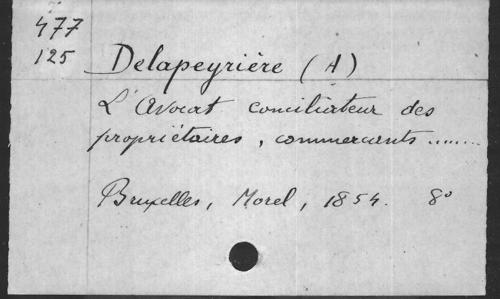 477
125
Delapeyrière (A)
L'Avocat conciliateur des
propriétaires, commercants .......
Bruxelles, Morel, 1854. 8°